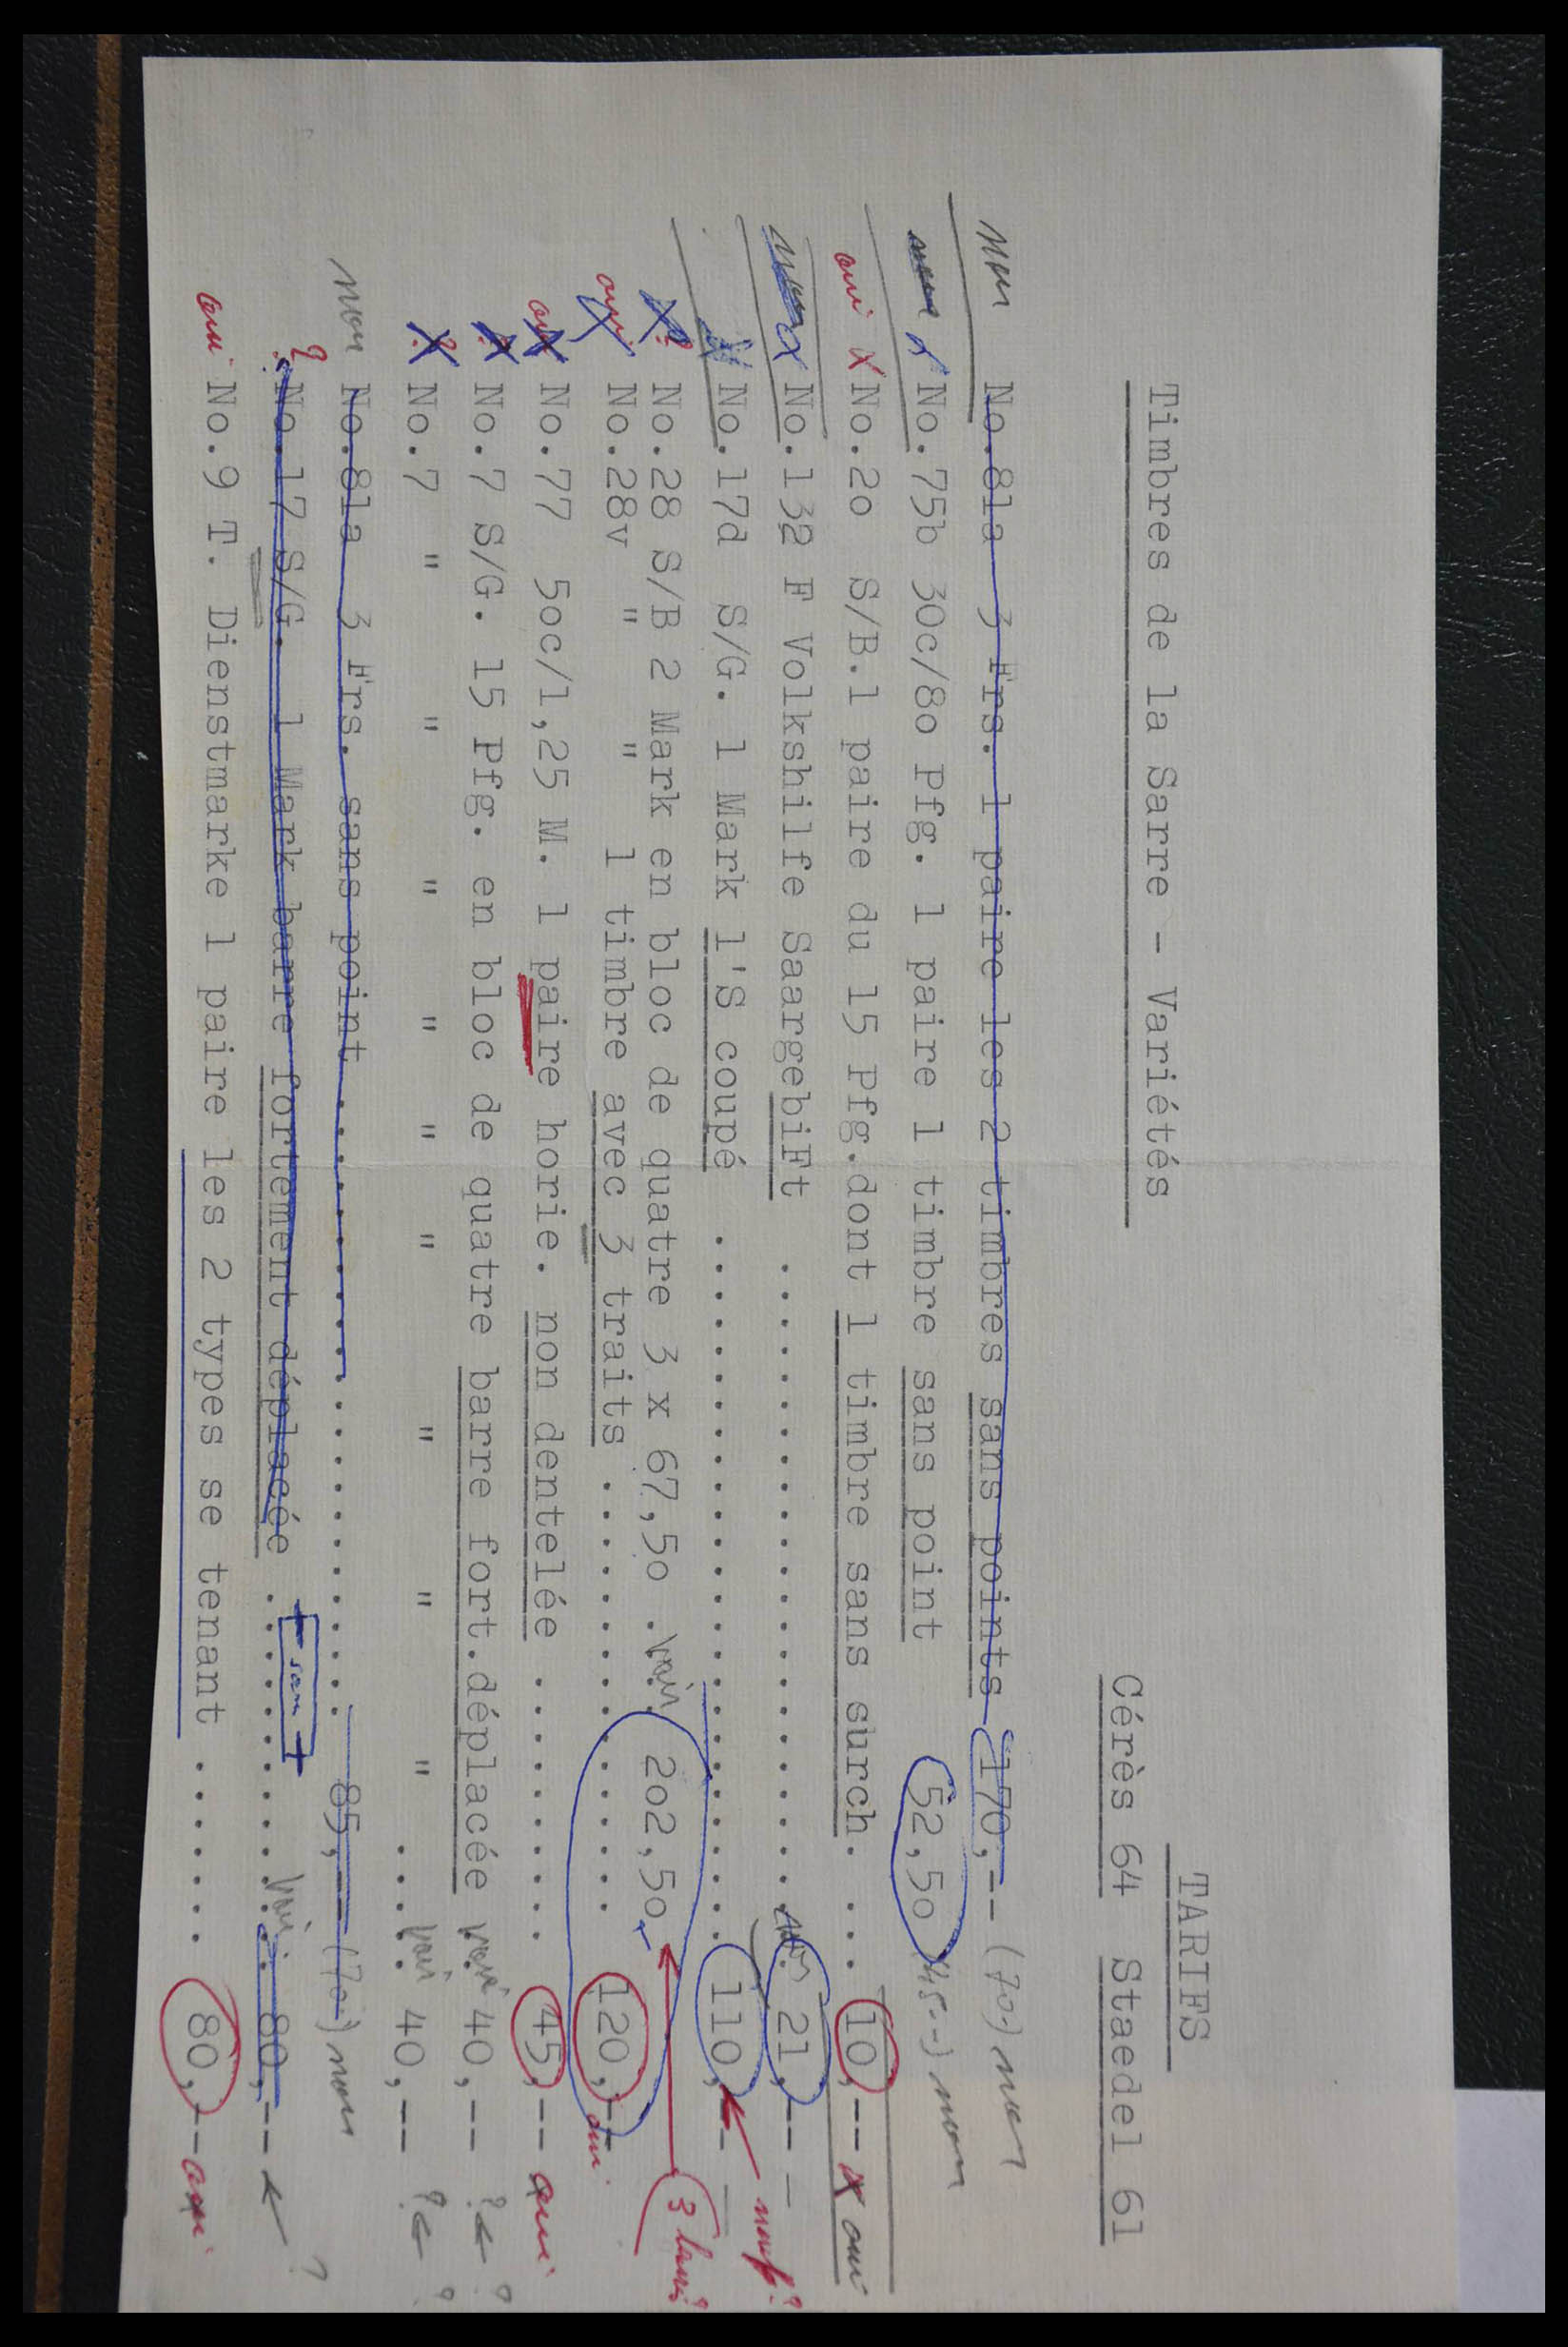 TARIFS
Timbres de la Sarre - Variétés
Cérès 64 Staedel 61
non No.81a 3 Frs. 1 paire les 2 timbres sans points 170,-- (70-) non
non x No.75b 30c/80 Pfg. 1 paire 1 timbre sans point 52,50 (45.-) non
oui x No.2o S/B.1 paire du 15 Pfg.dont 1 timbre sans surch. ... 10,-- x oui
non x No.132 F Volkshilfe SaargebiFt .......... 21,-- -
x No.17d S/G. 1 Mark l'S coupé .......... 110,-- neuf?
No.28 S/B 2 Mark en bloc de quatre 3 x 67,5o . voir 2o2,5o
oui x No.28v " " 1 timbre avec 3 traits .......... 120,-- oui
oui x No.77 5oc/1,25 M. 1 paire horie. non dentelée .......... 45,-- oui
x No.7 S/G. 15 Pfg. en bloc de quatre barre fort.déplacée voir 40,-- ? ← ?
? x No.7 " " " " " " " " " ... voir 40,-- ? ← ?
non No.81a 3 Frs. sans point .......... 85,-- (70-) non
? No.17 S/G. 1 Mark barre fortement déplacée .......... voir 80,-- ← ?
oui No.9 T. Dienstmarke 1 paire les 2 types se tenant ...... 80,-- oui